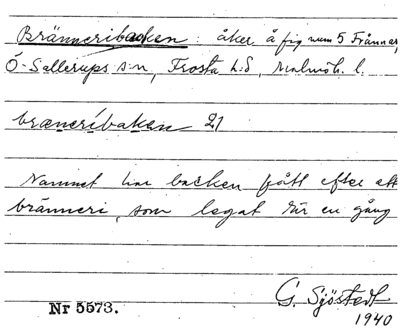 Bränneribacken: åker å fig num 5 Frännar,
Ö-Sallerups s:n, Frosta h:d, Malmöh. l.
bræneribakan 21
Namnet har backen fått efter ett
bränneri, som legat här en gång
G. Sjöstedt
1940
Nr 5573.